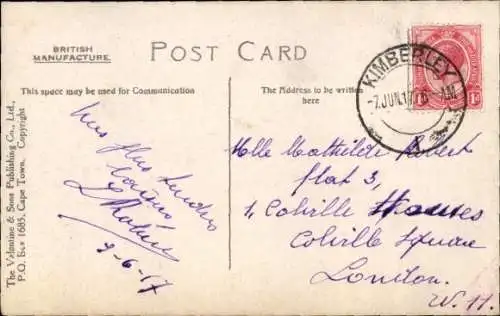 BRITISH
MANUFACTURE.
POST CARD
This space may be used for Communication
The Address to be written
here
KIMBERLEY
7 JUN 17
AM
1d
Mes plus tendres
L
7-6-17
Mlle Mathilde Robert
flat 3,
1, Colville Houses
Colville Square
London.
W. 11.
The Valentine & Sons Publishing Co., Ltd.,
P.O. Box 1685, Cape Town. Copyright